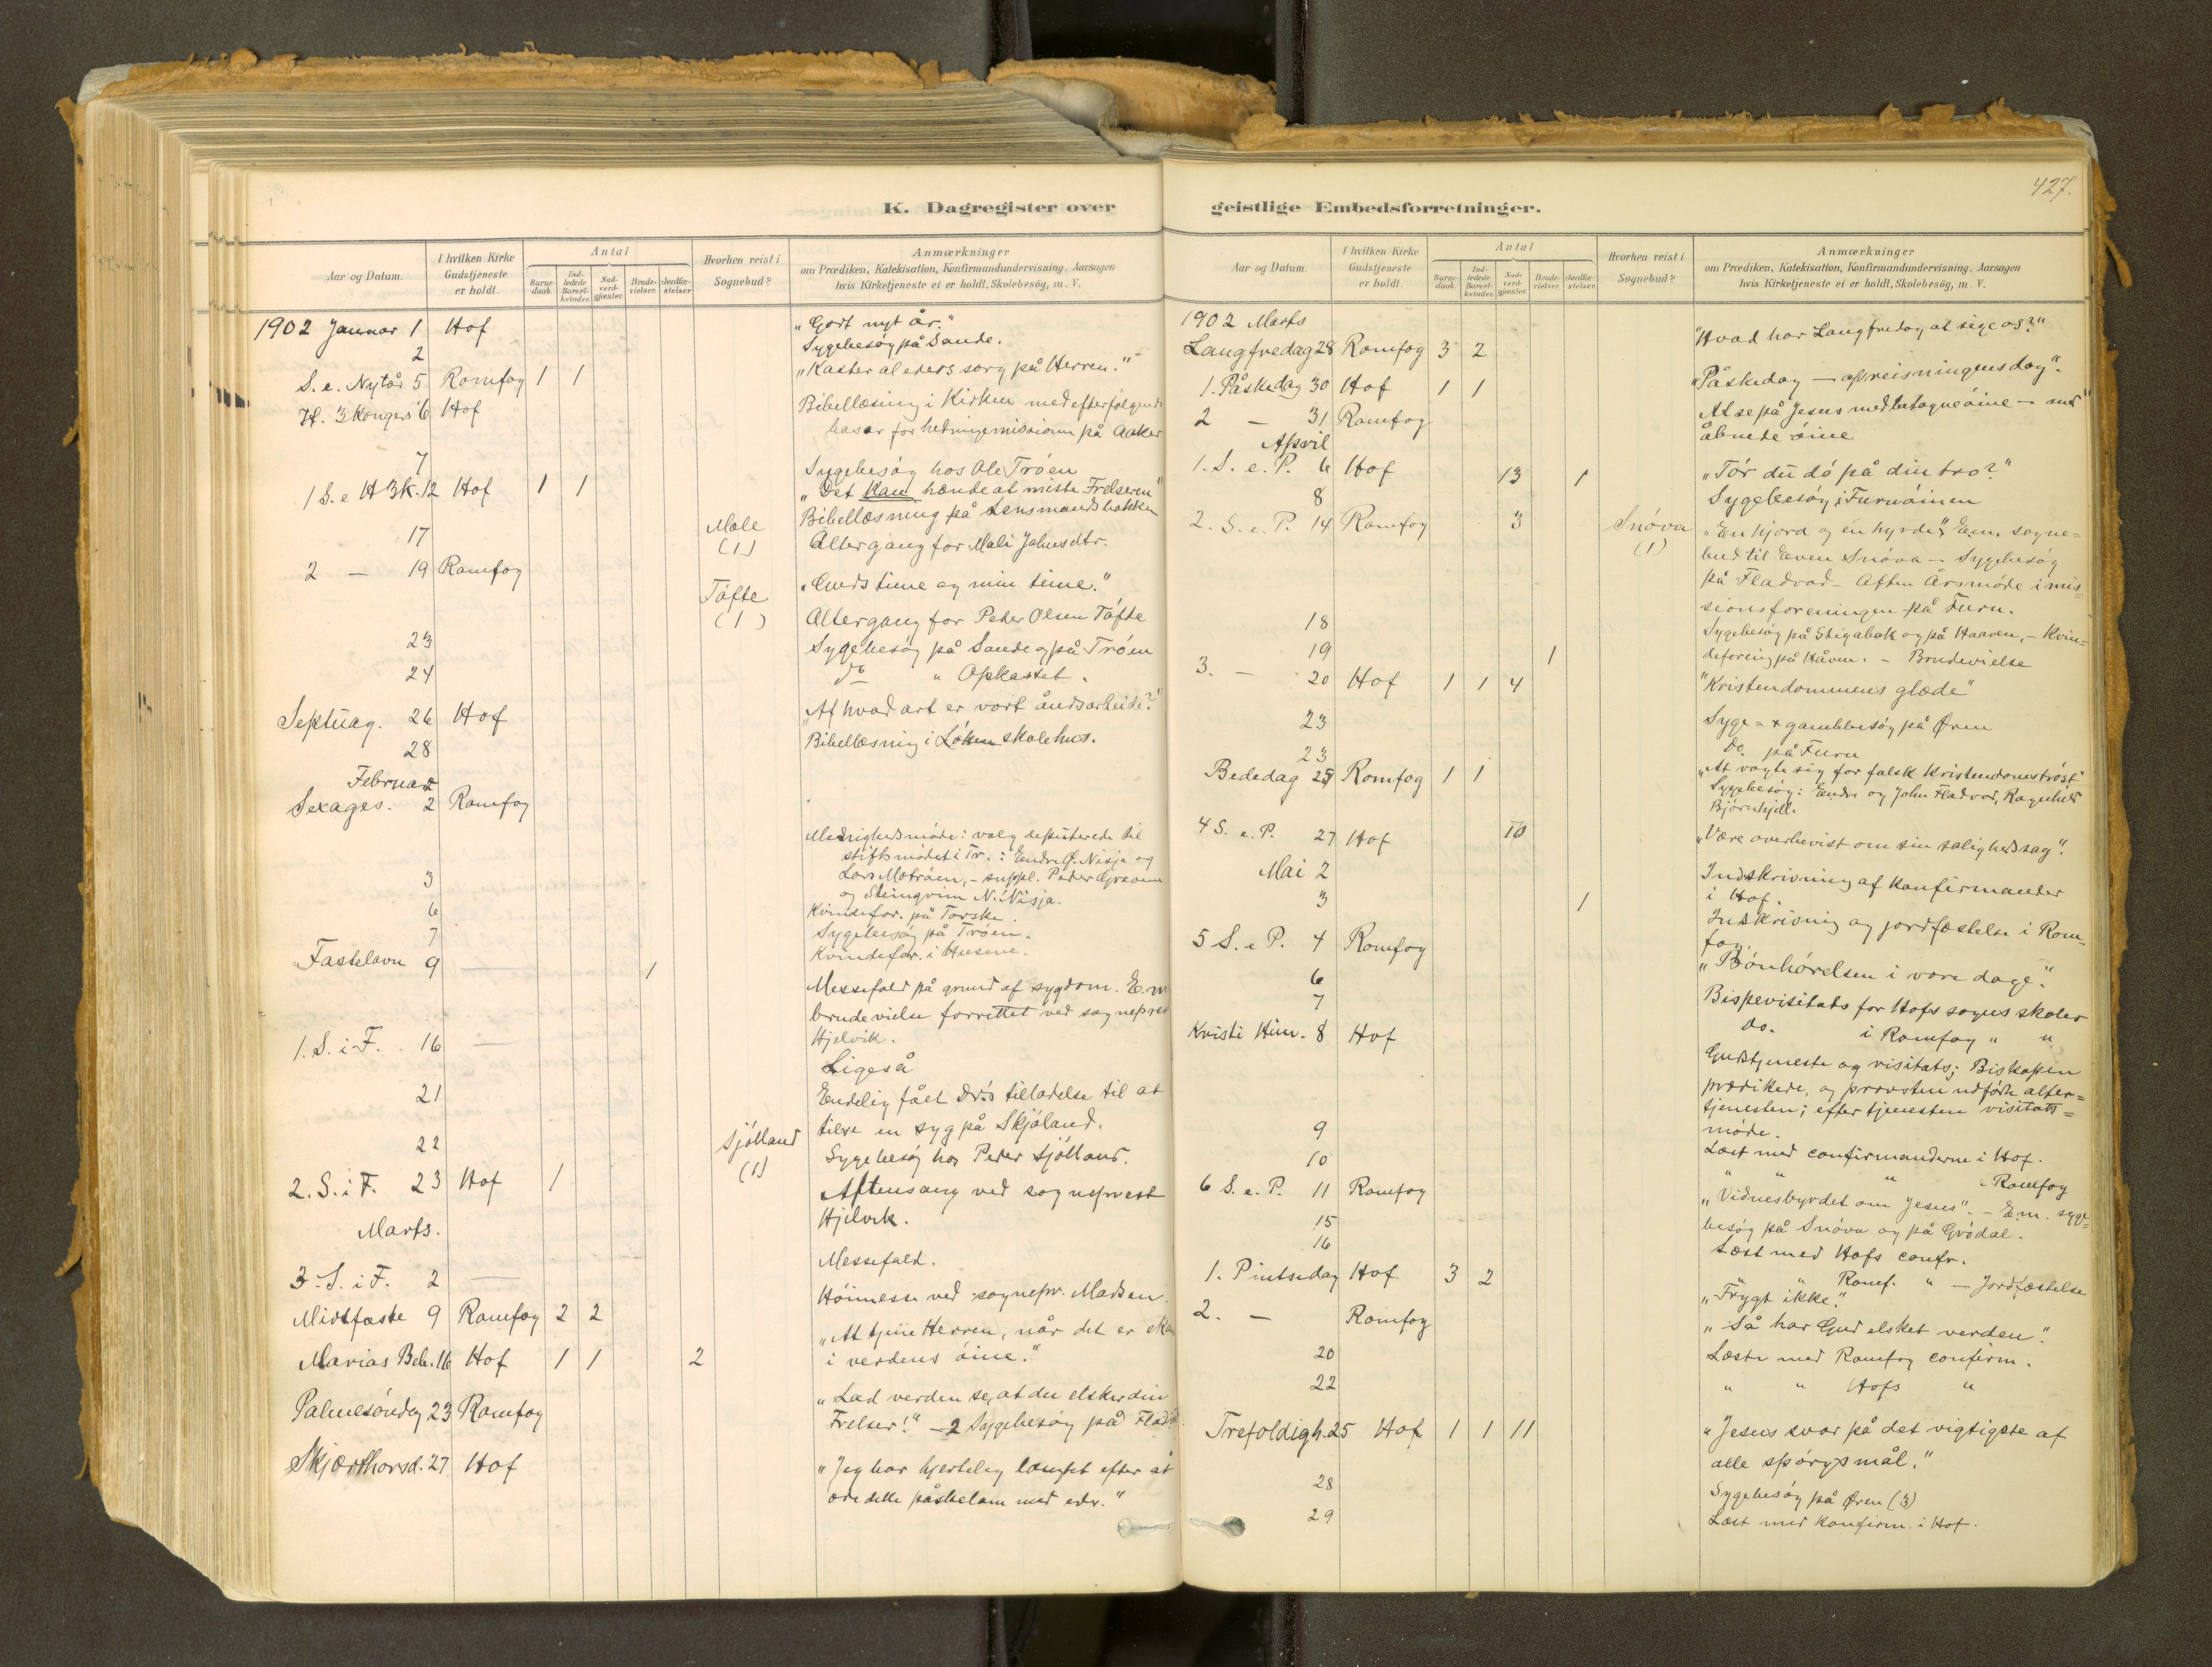 K. Dagregister over
Aar og Datum. | I hvilken Kirke Gudstjeneste er holdt. | Antal | Barnedaab. | Indledede Barselkvinder. | Nadverdgjæster. | Brudevielser. | Jordfæstelser | Hvorhen reist i Sognebud? | Anmærkninger
om Prædiken, Katekisation, Konfirmandundervisning, Aarsagen
hvis Kirketjeneste ei er holdt, Skolebesøg, m. V.
1902 Januar 1 Hof "Godt nyt år."
2 Sygebesøg på Sande.
S. e. Nytår 5 Romfog 1 1 "Kaster al eders sorg på Herren."
H. 3 Kongers 6 Hof Bibellæsning i Kirken med efterfølgende
basar for hedningemissionen på Aaker
7 Sygebesøg hos Ole Trøen
1 S. e H 3 K. 12 Hof 1 1 "Det kan hænde at miste Frelseren"
Bibellæsning på Lensmandsbakken
17 Mæle (1) Altergang for Mali Johnsdtr.
2 — 19 Romfog "Guds time og min time."
Tøfte (1) Altergang for Peder Olsen Tøfte
23 Sygebesøg på Sande og på Trøen
24 do " Opkastet.
Septuag. 26 Hof "Af hvad art er vort åndsarbeide?"
28 Bibellæsning i Løken skolehus.
Februar
Sexages. 2 Romfog
Menighedsmøde: valg deputerede til
stiftsmødet i Tr.: Endre O. Nisja og
3 Lars Motrøen, - suppl. Peder Gravem
og Steingrim N. Nisja.
6 Kvindefor. på Torske.
7 Sygebesøg på Trøen.
Kvindefor. i Husene.
Fastelavn 9 — 1
Messefald på grund af sygdom. E.m
brudevielse forrettet ved sognepræst
Hjelvik.
1. S. i F. 16 — Ligeså
21 Endelig fået Dr's tilladelse til at
tilse en syg på Skjøland.
22 Sjølland (1) Sygebesøg hos Peder Sjølland.
2. S. i F. 23 Hof 1 Aftensang ved sogneprest
Hjelvik.
Marts.
Messefald.
3. S. i F. 2 — Høimesse ved sognepr. Madsen.
Midtfaste 9 Romfog 2 2 "At tjene Herren, når det er skam
i verdens øine."
Marias Beb. 16 Hof 1 1 2
"Lad verden se, at du elsker din
Palmesøndag 23 Romfog Frelser!" - 2 Sygebesøg på Fladvad.
Skjærthorsd. 27 Hof "Jeg har hjertelig længtet efter at
æde dette påskelam med eder."
427.
geistlige Embedsforretninger.
Aar og Datum. | I hvilken Kirke Gudstjeneste er holdt. | Antal | Barnedaab. | Indledede Barselkvinder. | Nadverdgjæster. | Brudevielser. | Jordfæstelser | Hvorhen reist i Sognebud? | Anmærkninger
om Prædiken, Katekisation, Konfirmandundervisning, Aarsagen
hvis Kirketjeneste ei er holdt, Skolebesög, m. V.
1902 Marts
Langfredag 28 Romfog 3 2 "Hvad har Langfredag at sige os?"
1. Påskedag 30 Hof 1 1 "Påskedag — opreisningens dag".
2 — 31 Romfog At se på Jesus med betagne øine — med
åbnede øine
April
1. S. e. P. 6 Hof 13 1 "Tør du dø på din tro?"
8 Sygebesøg i Furumoen
2. S. e. P. 14 Romfog 3 Snøva (1) "En hjord og én hyrde". E.m. sogne=
bud til Even Snøva — Sygebesøg
på Fladvad — Aften Årsmøde i mis=
sionsforeningen på Furu.
18 Sygebesøg på Stigabak og på Haaven, — Kvin=
19 1 deforening på Håven. — Brudevielse
3. — 20 Hof 1 1 4 "Kristendommens glæde"
23 Syge= + gamlebesøg på Øren
23 Do. på Furu
Bededag 25 Romfog 1 1 "At vogte sig for falsk Kristendomstrøst"
Sygebesøg: Endre og John Fladvad, Ragnhild
Bjørnhjell.
4 S. e. P. 27 Hof 10 "Være overbevist om sin salighedssag".
Mai 2 Indskrivning af Konfirmander
i Hof.
3 1 Indskrivning og jordfæstelse i Rom=
fog.
5 S. e P. 4 Romfog "Bønhørelsen i vore dage".
6 Bispevisitats for Hofs sogns skoler
7 Do. i Romfog " "
Kristi Him. 8 Hof Gudstjeneste og visitats; Biskopen
prædikede, og provsten udførte alter=
tjenesten; efter tjenesten visitats=
møde.
9 Læst med confirmanderne i Hof.
10 " " " - Romfog
6 S. e. P. 11 Romfog "Vidnesbyrdet om Jesus". — E.m. syge=
besøg på Snøva og på Grødal.
15 Læst med Hofs confr.
16 " " Romf. " — Jordfæstelse
1. Pintsedag Hof 3 2 "Frygt ikke."
2. — Romfog "Så har Gud elsket verden".
20 Læste med Romfog confirm.
22 " " Hofs "
Trefoldigh. 25 Hof 1 1 11 "Jesus svar på det vigtigste af
alle spørgsmål."
28 Sygebesøg på Øren (3)
29 Læst med konfirm. i Hof.